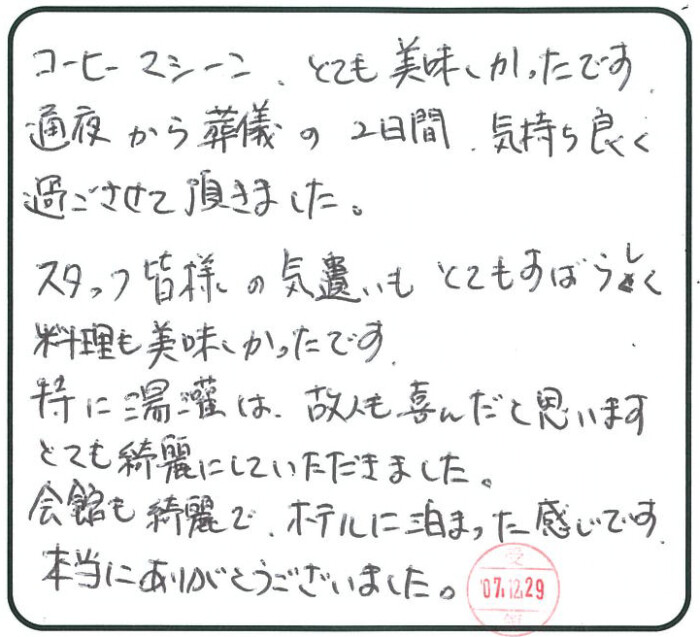 コーヒーマシーン、とても美味しかったです.
通夜から葬儀の2日間、気持ち良く
過ごさせて頂きました。
スタッフ皆様の気遣いもとてもすばらしく
料理も美味しかったです.
特に湯灌は、故人も喜んだと思います
とても綺麗にしていただきました。
会館も綺麗で、ホテルに泊まった感じです.
本当にありがとうございました。
受
'07.12.29